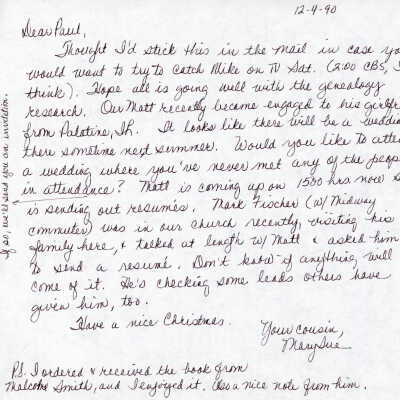 12-4-90
Dear Paul,
Thought I'd stick this in the mail in case you
would want to try to catch Mike on TV Sat. (2:00 CBS, I
think). Hope all is going well with the genealogy
research. Our Matt recently became engaged to his girlfr
from Palatine, IL. It looks like there will be a wedding
there sometime next summer. Would you like to atte
a wedding where you've never met any of the peop
in attendance? Matt is coming up on 1500 hrs now s
is sending out resumés. Mark Fischer (w/ Midway
commuter) was in our church recently, visiting his
family here, & talked at length w/ Matt & asked him
to send a resumé. Don't know if anything will
come of it. He's checking some leads others have
given him, too.
Have a nice Christmas.
Your cousin,
Mary Sue
P.S. I ordered & received the book from
Malcolm Smith, and I enjoyed it. Also a nice note from him.
If so, we'll send you an invitation.